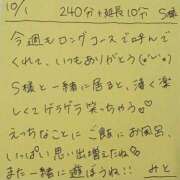 10/1 240分+延長10分 S様
今週もロングコースで呼んで
くれて、いつもありがとう(*ˊᵕˋ*)
S様と一緒に居ると、凄く楽
しくてゲラゲラ笑っちゃう♡
えっちなことに ご飯にお風呂、
いっぱい思い出増えたね♡♡
また一緒に遊ぼうね!! みと